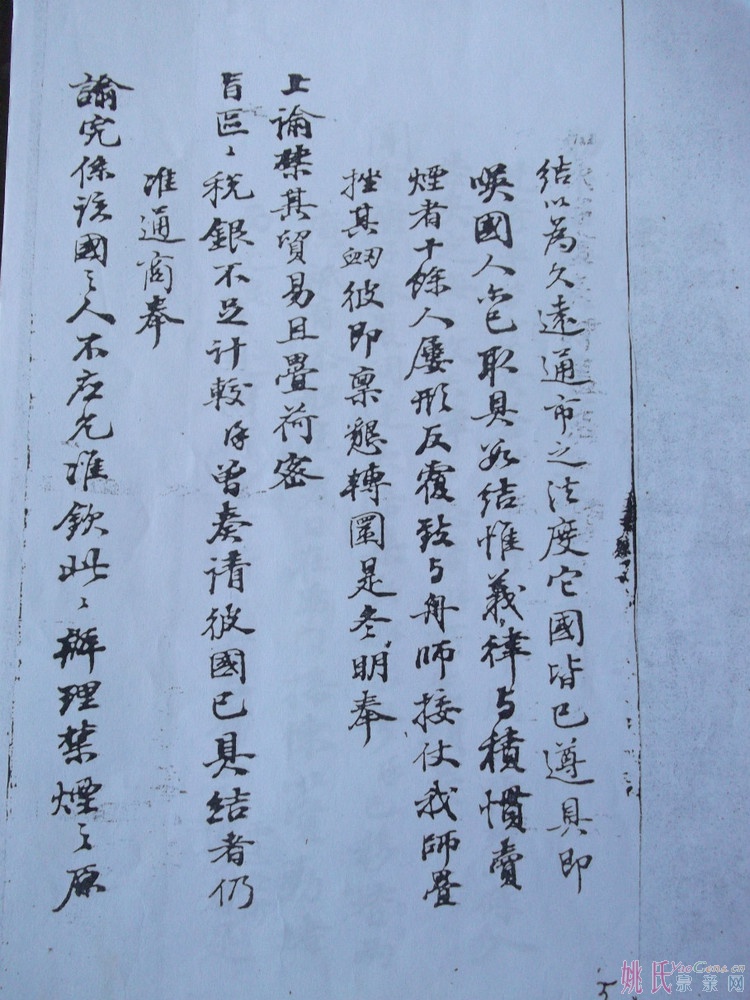 結以為久遠通市之法度它國皆已遵具即
𠸄國人亦已取具數結惟義律与積慣賣
煙者十餘人屢形反覆致与舟師接仗我師疊
挫其鋒彼即稟懇轉圜是冬明奉
上諭禁其貿易且疊荷密
旨區〻稅銀不足計較後曾奏請彼國已具結者仍
准通商奉
諭究係該國之人不應允准欽此〻辦理禁煙之原
5
姚氏宗亲网
YaoGens.cn